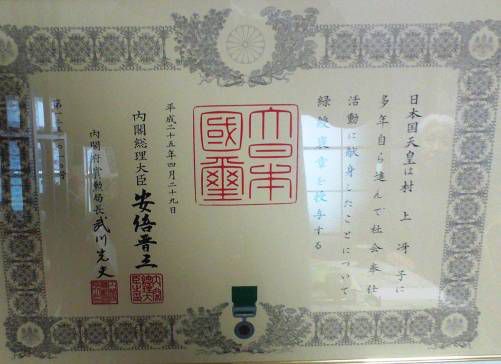 日本国天皇は村上冴子に
多年自ら進んで社会奉仕
活動に献身したことについて
緑綬褒章を授与する
大日本國璽
平成二十五年四月二十九日
内閣総理大臣 安倍晋三
内閣府賞勲局長 武川光夫